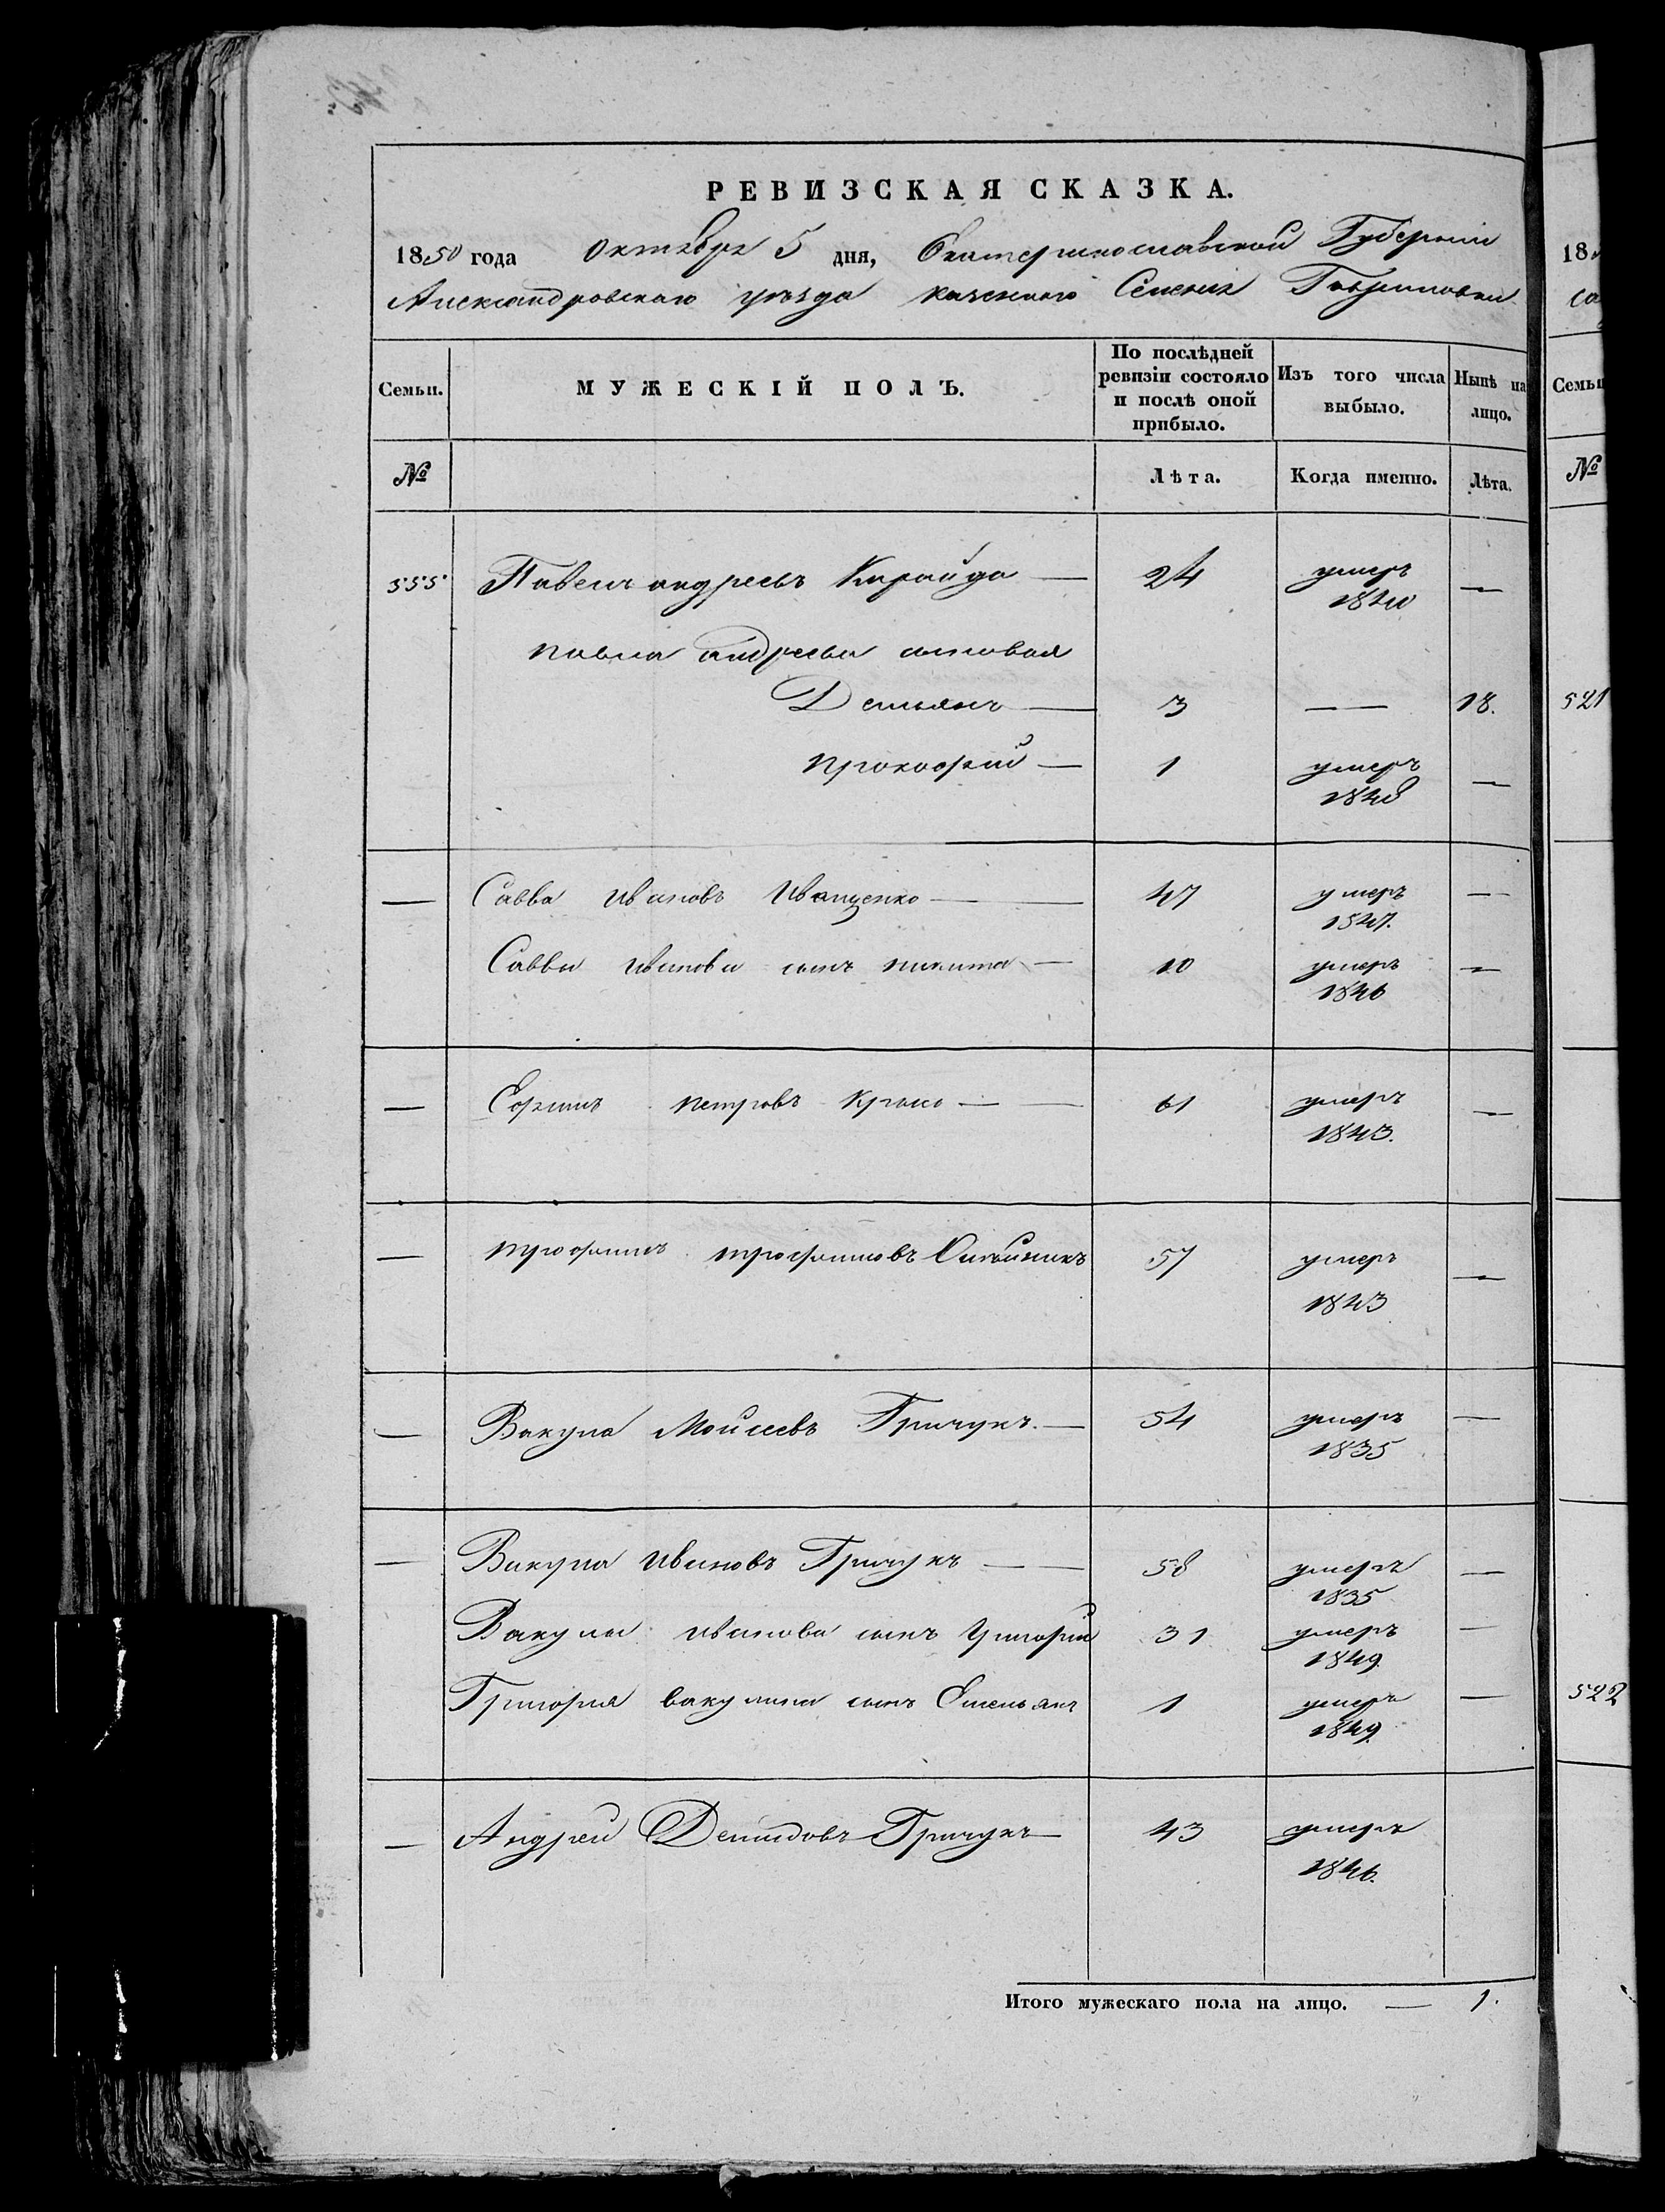 РЕВИЗСКАЯ СКАЗКА.
1850 года октября 5 дня, Екатеринославской Губернии
Александровскаго уѣзда казеннаго Селенія Гавриловки
Семьи. МУЖЕСКІЙ ПОЛЪ. По послѣдней ревизіи состояло и послѣ оной прибыло. Изъ того числа выбыло. Нынѣ на лицо.
№ Лѣта. Когда именно. Лѣта.
555 Павелъ андреевъ — 24 умеръ 1840 —
павла андреева сыновья
Демьянъ — 3 — 18.
прокофий — 1 умеръ 1848 —
— Савва Ивановъ Иващенко — 47 умеръ 1847. —
Саввы Иванова сынъ никита — 10 умеръ 1846 —
— Ефимъ петровъ — 61 умеръ 1843. —
— трофимъ трофимовъ Олейникъ 57 умеръ 1843 —
— Вакула Моисеевъ Грицукъ — 54 умеръ 1835 —
— Вакула Ивановъ Грицукъ — 58 умеръ 1835 —
Вакулы Иванова сынъ Григорій 31 умеръ 1849 —
Григорія вакулина сынъ Емельянъ 1 умеръ 1849. —
— Андрей Демидовъ Грицукъ — 43 умеръ 1846.
Итого мужескаго пола на лицо. — 1.
18
Семьи
№
521
522